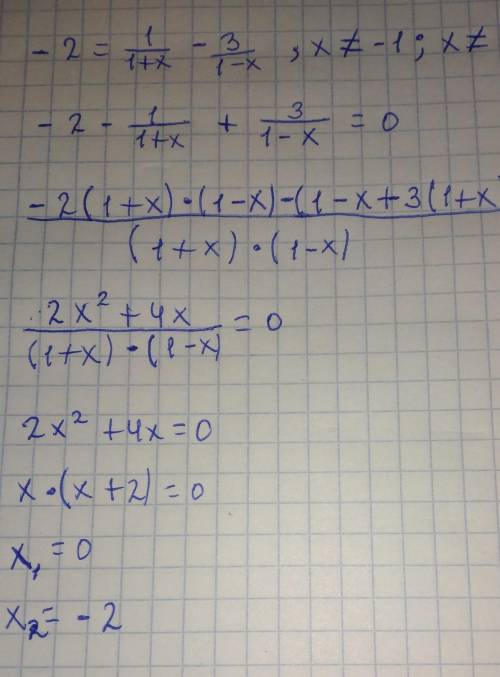 -2 = 1/(1+x) - 3/(1-x) , x ≠ -1 ; x ≠
-2 - 1/(1+x) + 3/(1-x) = 0
-2(1+x)·(1-x)-(1-x+3(1+x) / (1+x)·(1-x)
2x² + 4x / (1+x)·(1-x) = 0
2x² + 4x = 0
x·(x+2) = 0
x₁ = 0
x₂ = -2